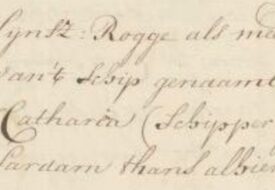 Lynsz: Rogge als me
van't Schip genaamt
Catharia (Schipper
Sardam thans alhie